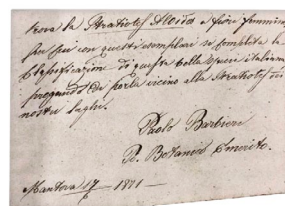 trova la Stratiotes Aloides a fiore femmineo
che per con questi esemplari si completa la
Classificazione di questa bella specie italiana
pregando di porla vicino alla Stratiotes di
nostri laghi.
Paolo Barbieri
P. Botanico Emerito.
Mantova 17 1871